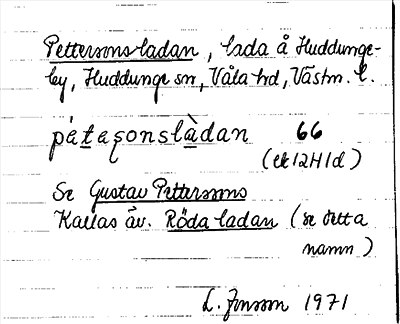 Pettersons ladan, lada å Huddunge-
by, Huddunge sn, Våla hd, Västm. l.
pátaʂonslàdan 66
(ek 12H1d)
Se Gustav Pettersons
Kallas äv. Röda ladan (se detta
namn)
L. Jonson 1971